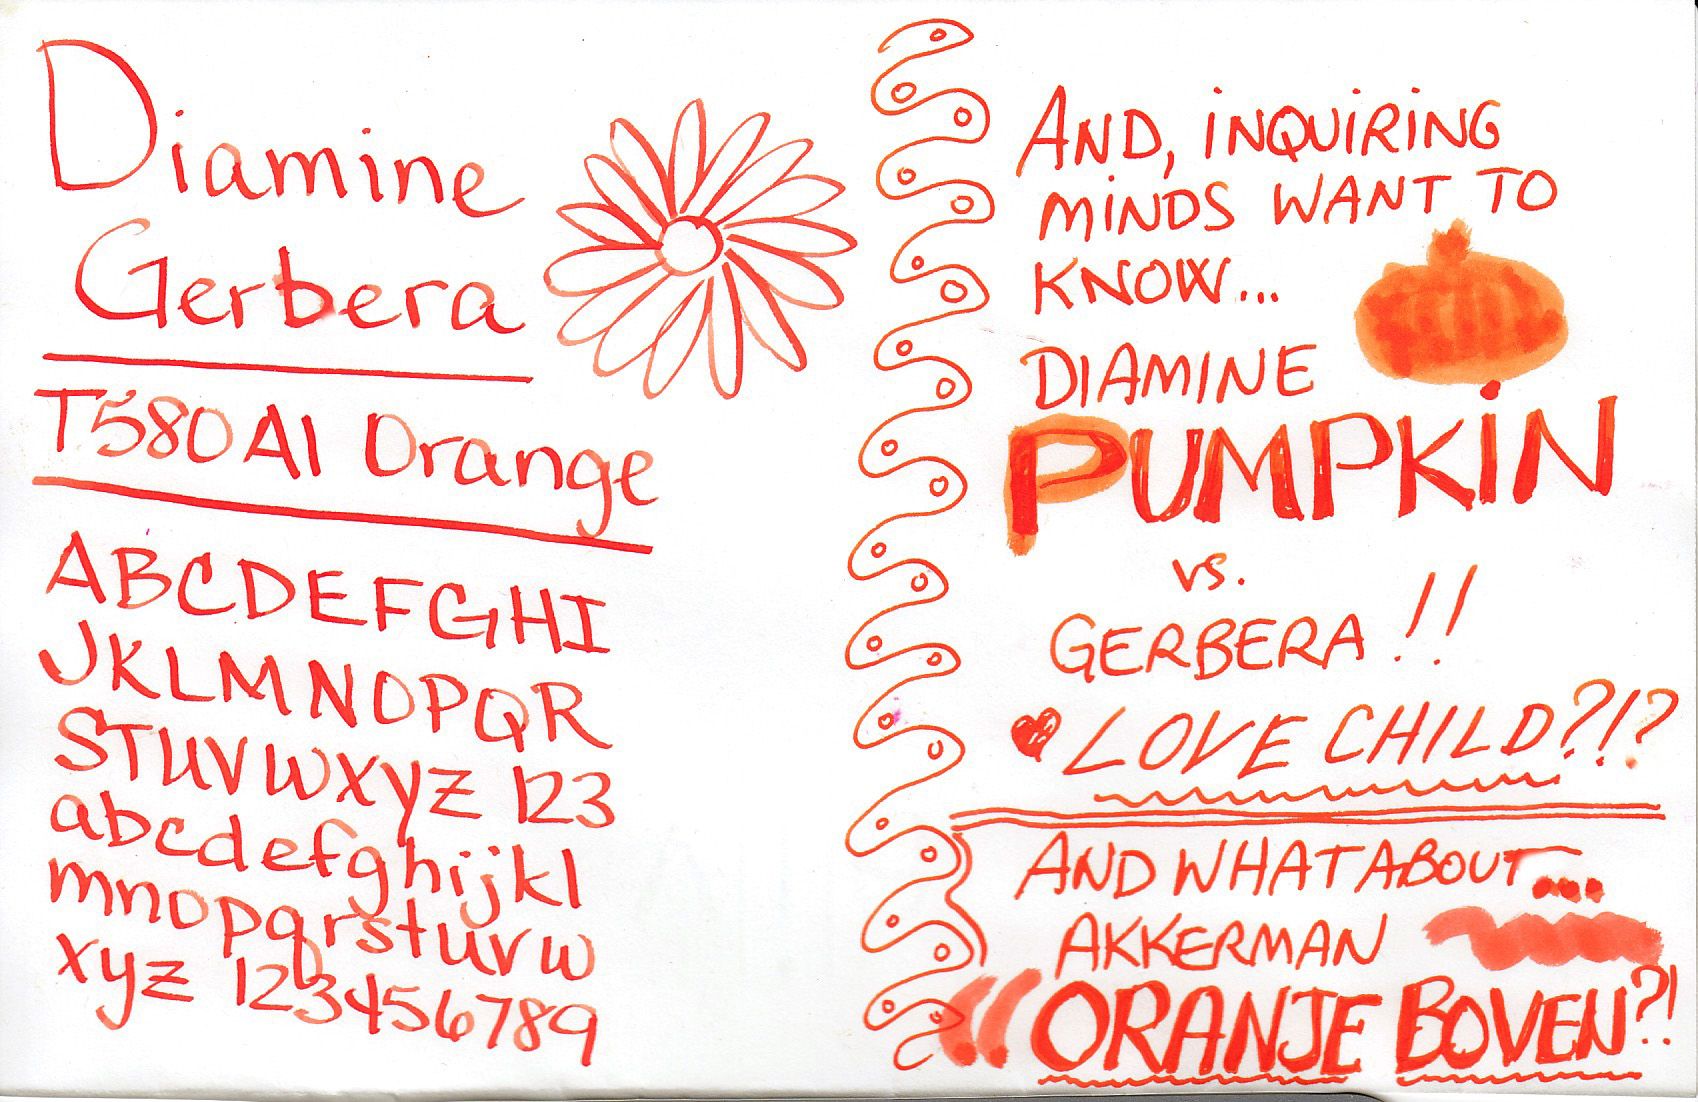 Diamine
Gerbera
T580 A1 Orange
ABCDEFGHI
JKLMNOPQR
STUVWXYZ 123
abcdefghijkl
mnopqrstuvw
xyz 123456789
AND, INQUIRING
MINDS WANT TO
KNOW...
DIAMINE
PUMPKIN
VS.
GERBERA!!
LOVE CHILD?!?
AND WHAT ABOUT...
AKKERMAN
"ORANJE BOVEN?!